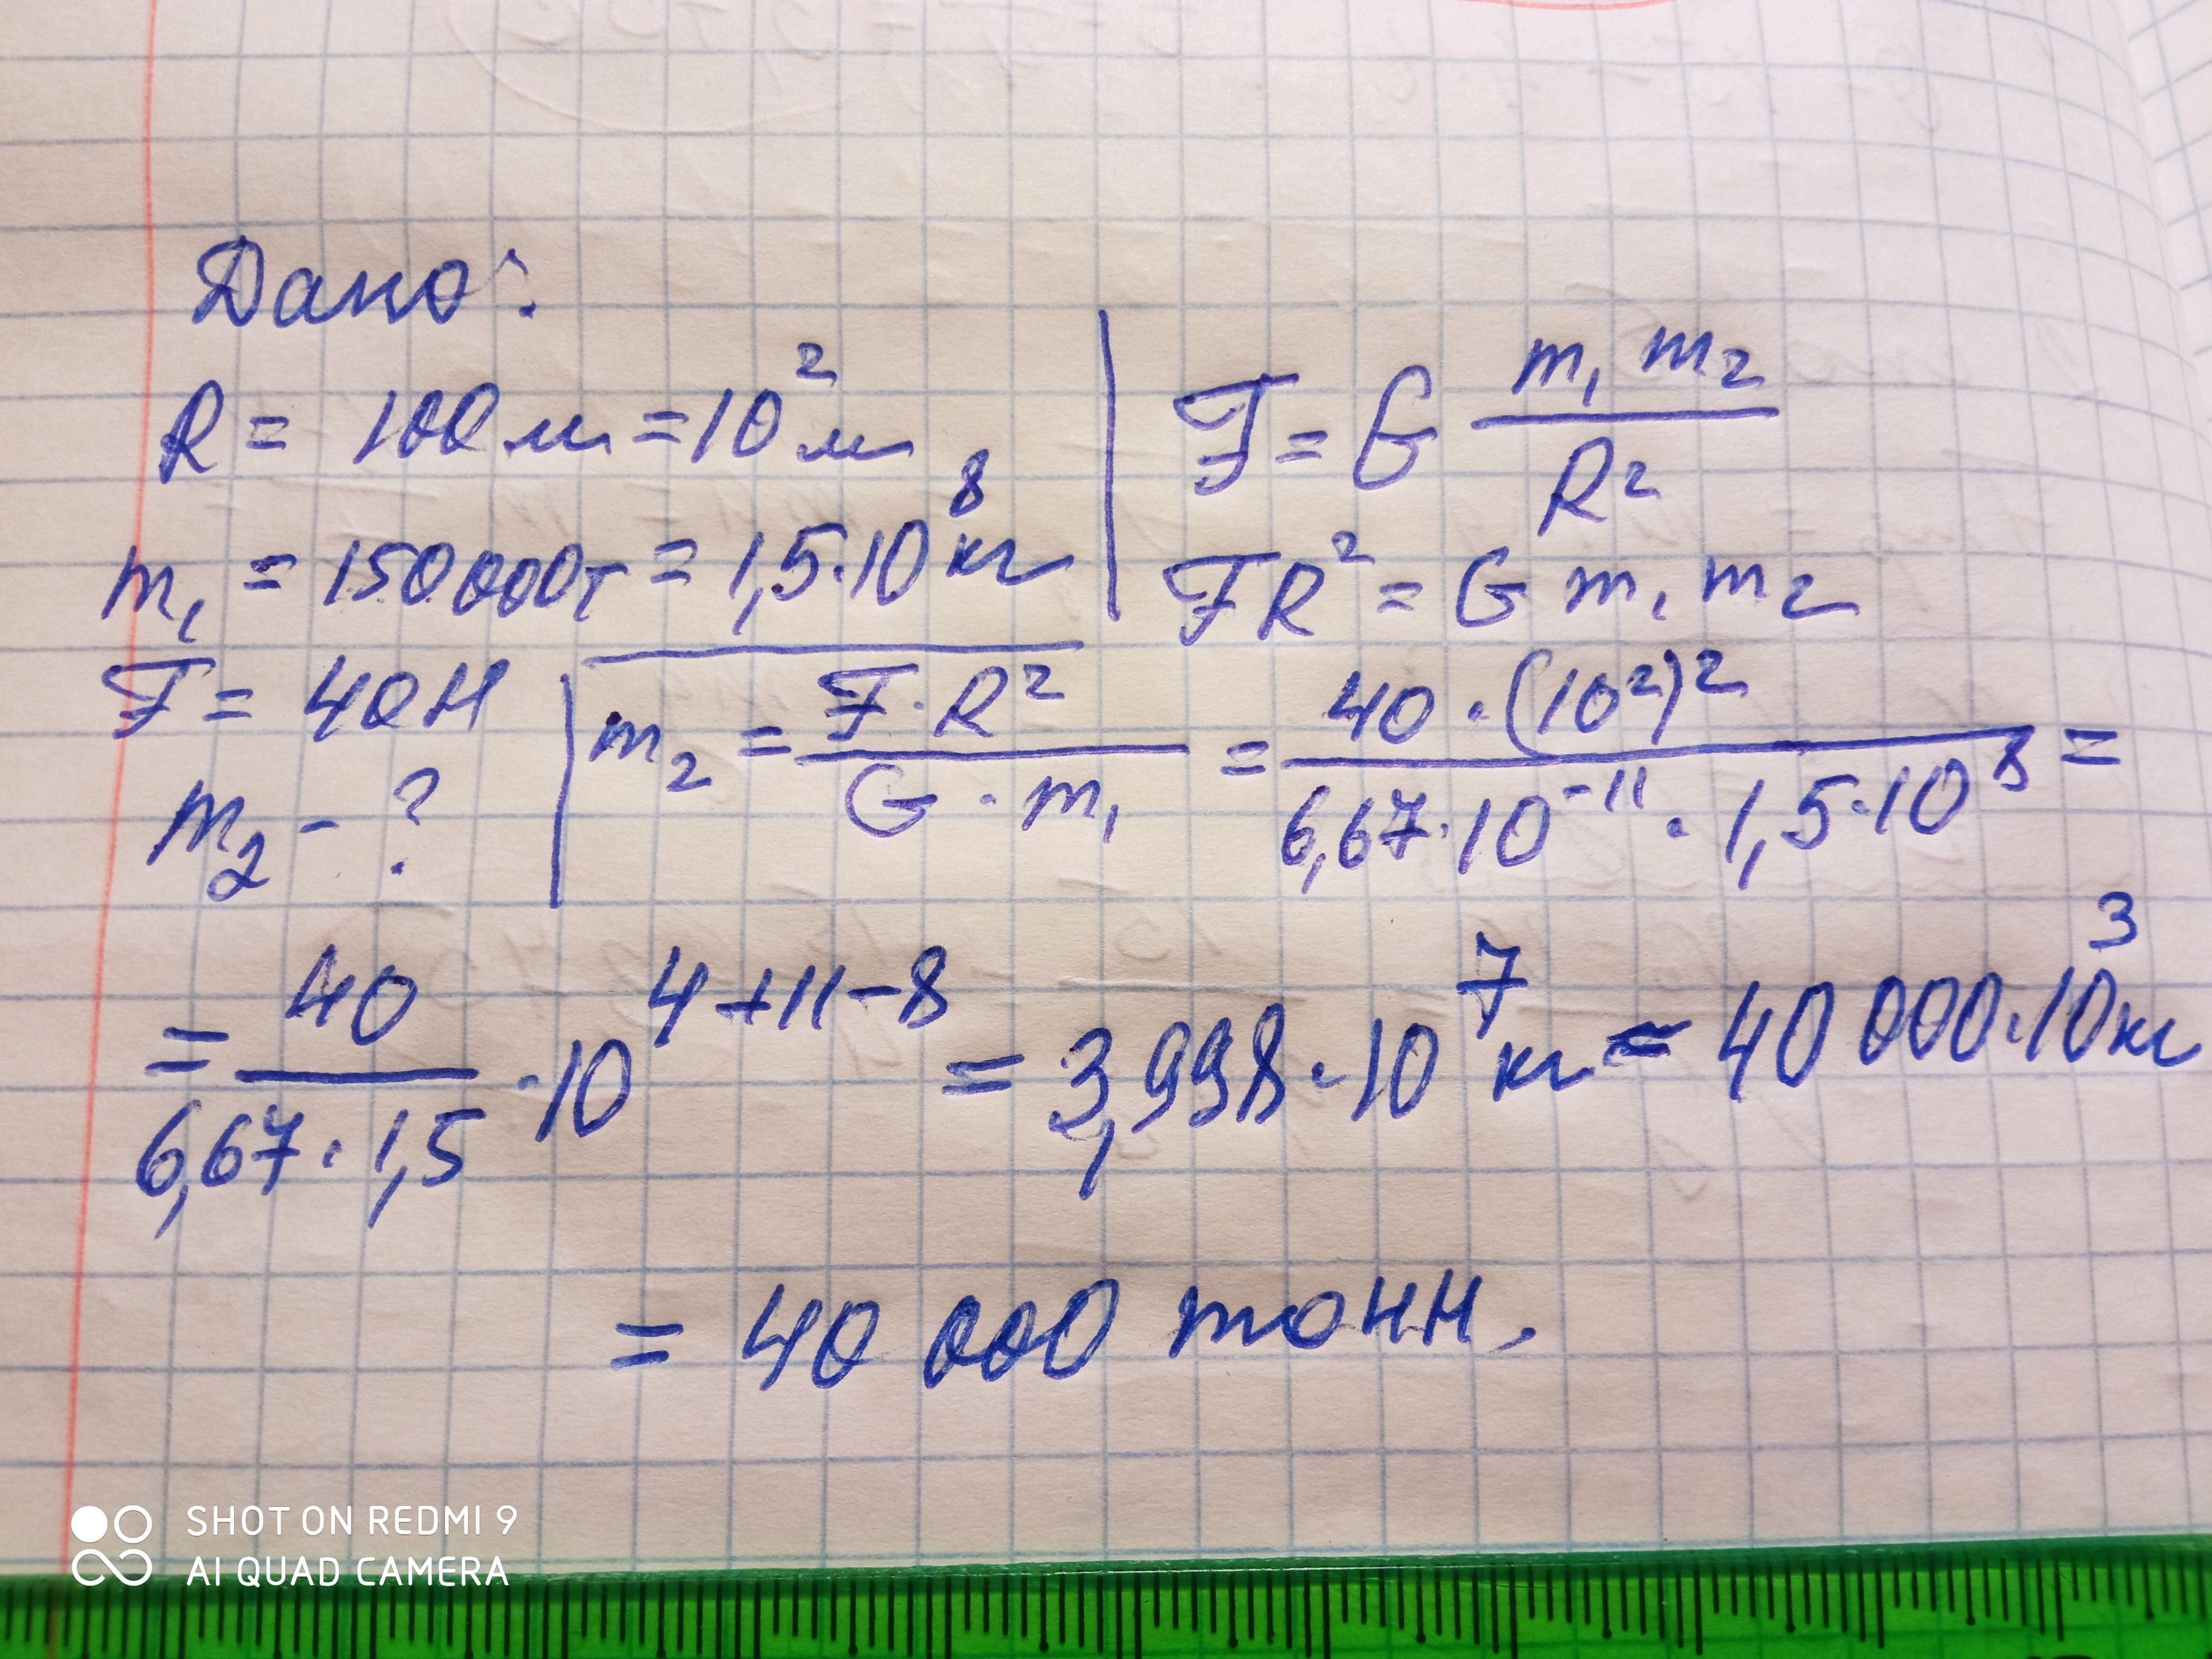 Дано:
R = 100 м = 10² м
m₁ = 150 000 т = 1,5·10⁸ кг
F = 40 Н
m₂ - ?
F = G m₁ m₂ / R²
FR² = G m₁ m₂
m₂ = F·R² / G·m₁ = 40·(10²)² / 6,67·10⁻¹¹·1,5·10⁸ =
= 40 / 6,67·1,5 ·10⁴⁺¹¹⁻⁸ = 3,998·10⁷ кг = 40 000·10³ кг
= 40 000 тонн.
SHOT ON REDMI 9
AI QUAD CAMERA